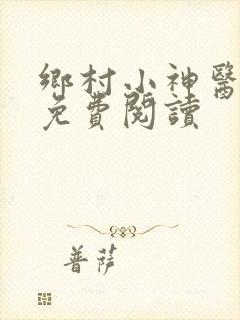 鄉村小神醫
免費閱讀
菩薩